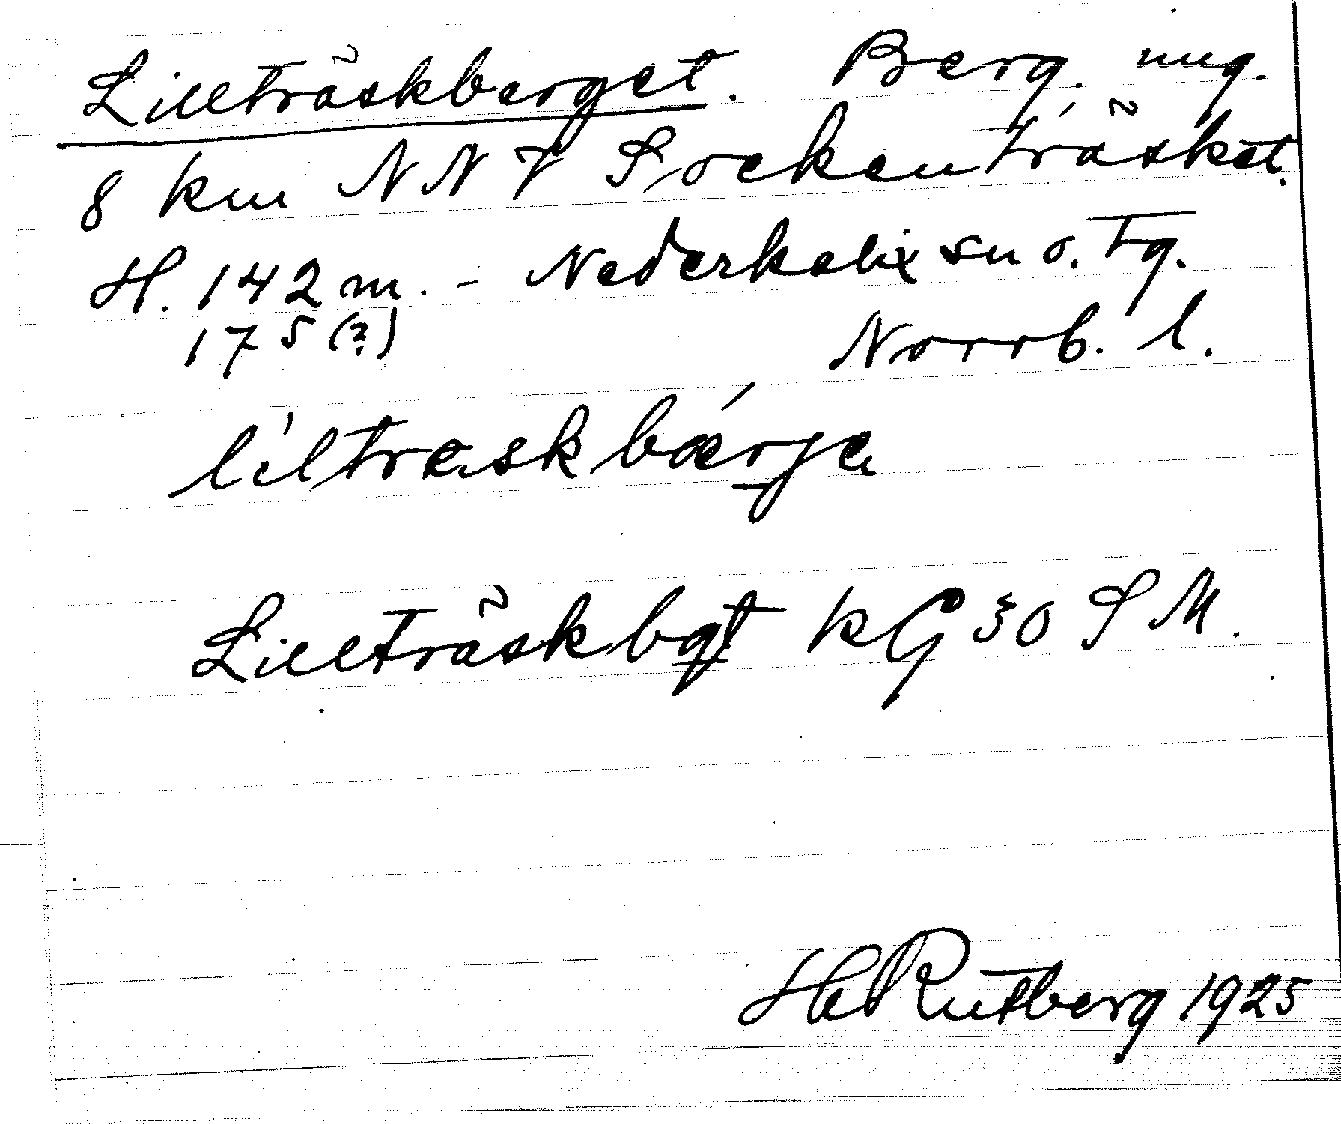 Lillträskberget. Berg. ung.
8 km NNV Sockenträsket.
H. 142 m. - Nederkalix sn o. Tg.
175 (?) Norrb. l.
liltraskbærja
Lillträskbgt KG 30 SM.
HRutberg 1925